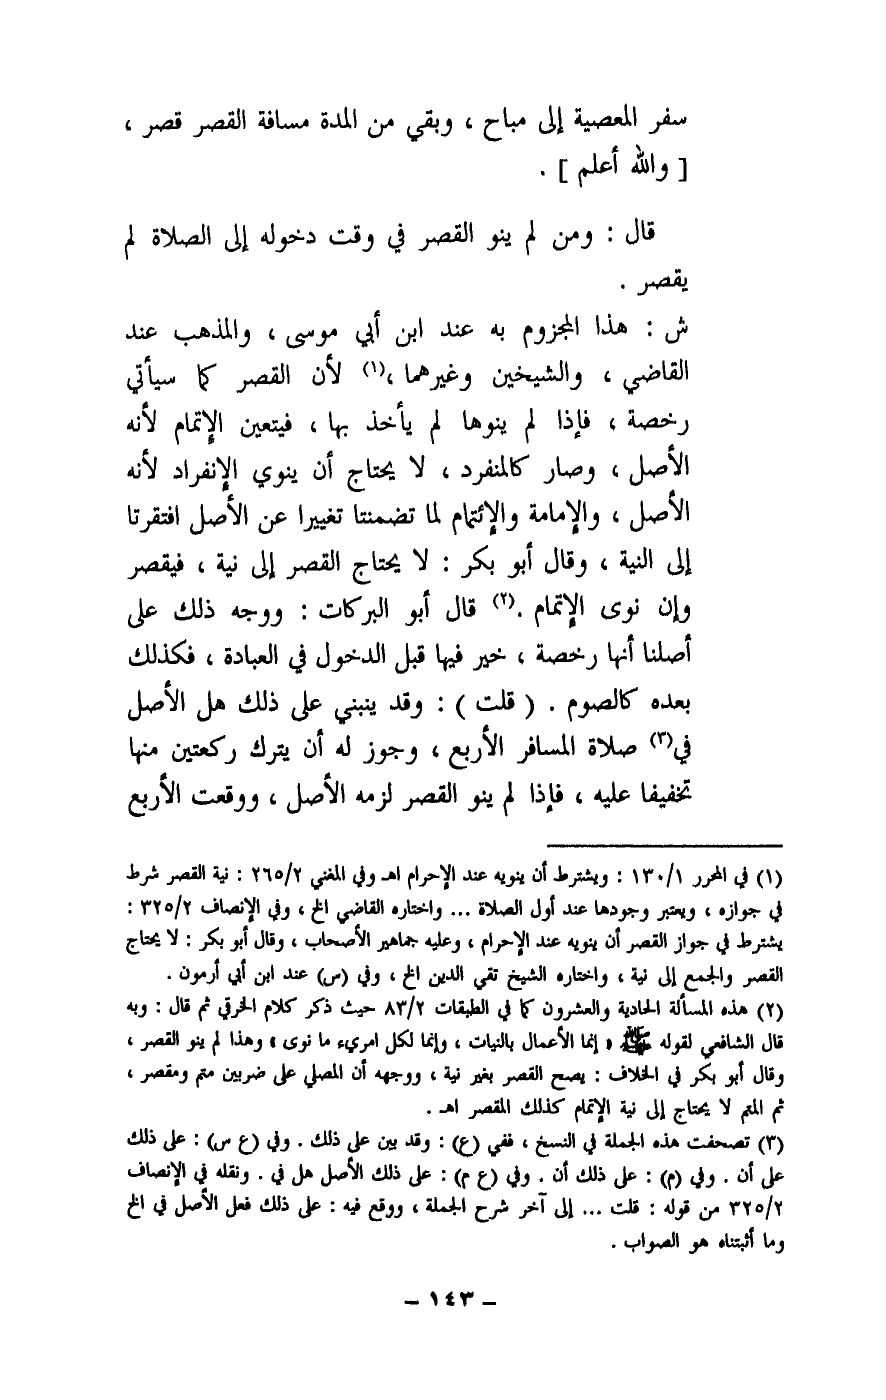 سفر المعصية إلى مباح ، وبقي من المدة مسافة القصر قصر ،
[ والله أعلم ] .
قال : ومن لم ينو القصر في وقت دخوله إلى الصلاة لم
يقصر .
ش : هذا المجزوم به عند ابن أبي موسى ، والمذهب عند
القاضي ، والشيخين وغيرهما ،(١) لأن القصر كما سيأتي
رخصة ، فإذا لم ينوها لم يأخذ بها ، فيتعين الإتمام لأنه
الأصل ، وصار كالمنفرد ، لا يحتاج أن ينوي الإنفراد لأنه
الأصل ، والإمامة والإئتمام لما تضمنتا تغييرا عن الأصل افتقرتا
إلى النية ، وقال أبو بكر : لا يحتاج القصر إلى نية ، فيقصر
وإن نوى الإتمام .(٢) قال أبو البركات : ووجه ذلك على
أصلنا أنها رخصة ، خير فيها قبل الدخول في العبادة ، فكذلك
بعده كالصوم . ( قلت ) : وقد ينبني على ذلك هل الأصل
في(٣) صلاة المسافر الأربع ، وجوز له أن يترك ركعتين منها
تخفيفا عليه ، فإذا لم ينو القصر لزمه الأصل ، ووقعت الأربع
(١) في المحرر ١٣٠/١ : ويشترط أن ينويه عند الإحرام اهـ وفي المغني ٢٦٥/٢ : نية القصر شرط
في جوازه ، ويعتبر وجودها عند أول الصلاة ... واختاره القاضي الخ ، وفي الإنصاف ٣٢٥/٢ :
يشترط في جواز القصر أن ينويه عند الإحرام ، وعليه جماهير الأصحاب ، وقال أبو بكر : لا يحتاج
القصر والجمع إلى نية ، واختاره الشيخ تقي الدين الخ ، وفي (س) عند ابن أبي أرمون .
(٢) هذه المسألة الحادية والعشرون كما في الطبقات ٨٣/٢ حيث ذكر كلام الخرقي ثم قال : وبه
قال الشافعي لقوله ﷺ « إنما الأعمال بالنيات ، وإنما لكل امريء ما نوى » وهذا لم ينو القصر ،
وقال أبو بكر في الخلاف : يصح القصر بغير نية ، ووجهه أن المصلي على ضربين متم ومقصر ،
ثم المتم لا يحتاج إلى نية الإتمام كذلك المقصر اهـ .
(٣) تصحفت هذه الجملة في النسخ ، ففي (ع) : وقد بين على ذلك . وفي (ع س) : على ذلك
على أن . وفي (م) : على ذلك أن . وفي (ع م) : على ذلك الأصل هل في . ونقله في الإنصاف
٣٢٥/٢ من قوله : قلت ... إلى آخر شرح الجملة ، ووقع فيه : على ذلك فعل الأصل في الخ
وما أثبتناه هو الصواب .
– ١٤٣ –